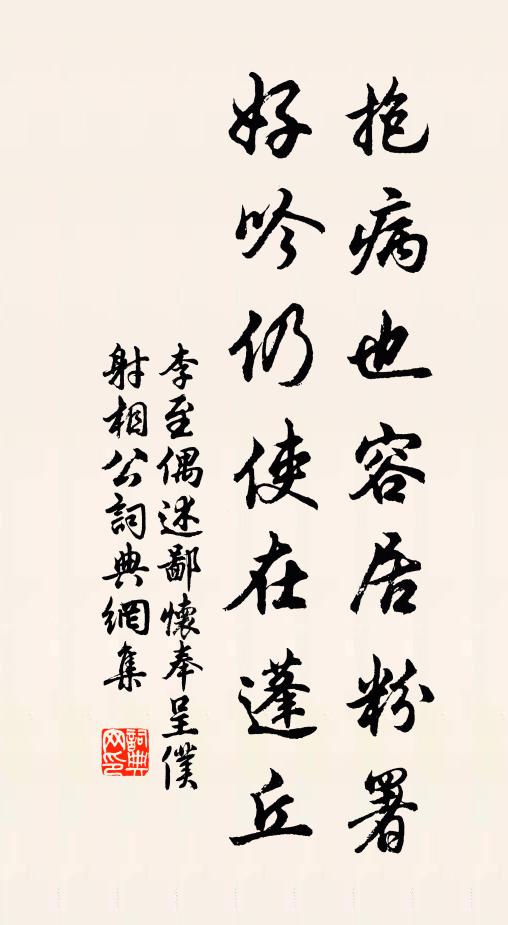 抱病也容居粉署
好吟仍使在蓬丘
李至偶述鄙懷奉呈僕
射相公詞典網集
詞典
网印